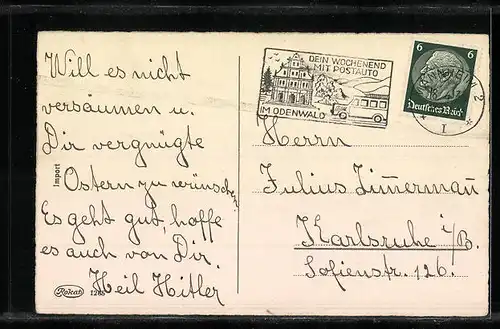 Will es nicht
versäumen u.
Dir vergnügte
Ostern zu wünschen.
Es geht gut, hoffe
es auch von Dir.
Heil Hitler
Import
Rokat
DEIN WOCHENEND
MIT POSTAUTO
IM ODENWALD
6 6
Deutsches Reich
2
I
Herrn
Julius Zimmermann
Karlsruhe i/B.
Sofienstr. 126.